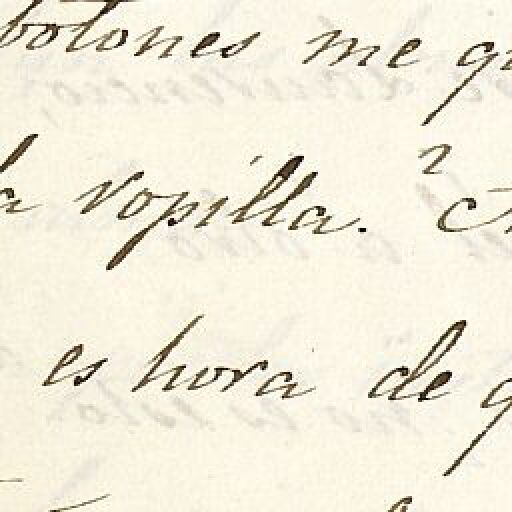 botones me
la ropilla.
es hora de